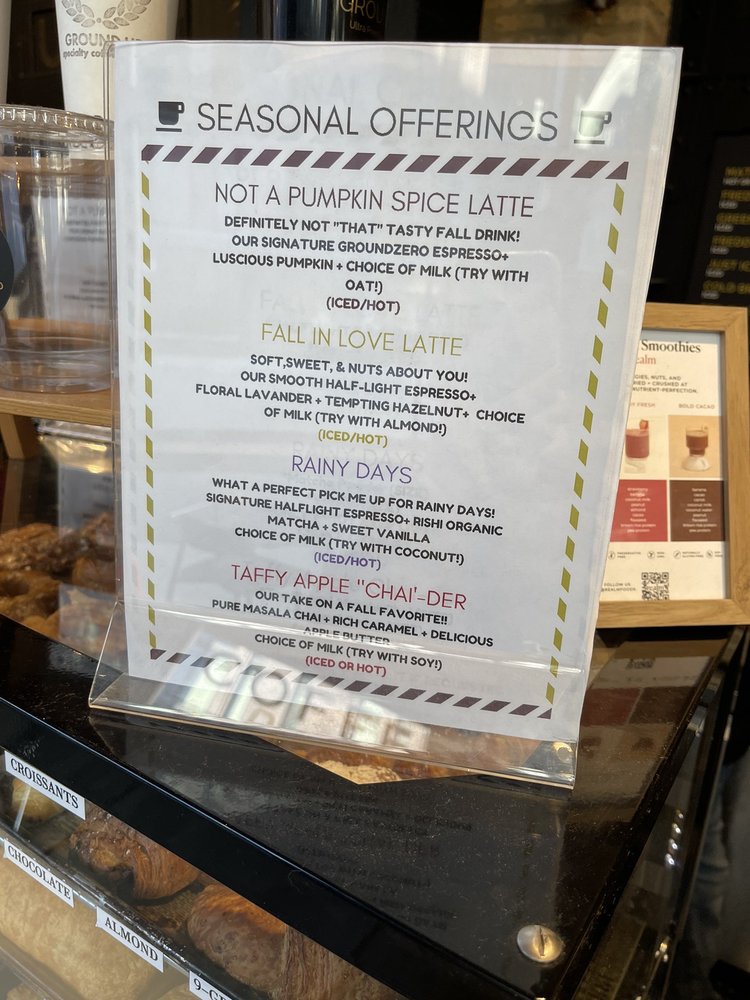 GROUND UP
SEASONAL OFFERINGS
NOT A PUMPKIN SPICE LATTE
DEFINITELY NOT "THAT" TASTY FALL DRINK!
OUR SIGNATURE GROUNDZERO ESPRESSO+
LUSCIOUS PUMPKIN + CHOICE OF MILK (TRY WITH
OAT!)
(ICED/HOT)
FALL IN LOVE LATTE
SOFT,SWEET, & NUTS ABOUT YOU!
OUR SMOOTH HALF-LIGHT ESPRESSO+
FLORAL LAVANDER + TEMPTING HAZELNUT+ CHOICE
OF MILK (TRY WITH ALMOND!)
(ICED/HOT)
RAINY DAYS
WHAT A PERFECT PICK ME UP FOR RAINY DAYS!
SIGNATURE HALFLIGHT ESPRESSO+ RISHI ORGANIC
MATCHA + SWEET VANILLA
CHOICE OF MILK (TRY WITH COCONUT!)
(ICED/HOT)
TAFFY APPLE "CHAI'-DER
OUR TAKE ON A FALL FAVORITE!!
PURE MASALA CHAI + RICH CARAMEL + DELICIOUS
APPLE BUTTER
CHOICE OF MILK (TRY WITH SOY!)
(ICED OR HOT)
COFFEE
Smoothies
BOLD CACAO
FOLLOW US
CROISSANTS
CHOCOLATE
ALMOND